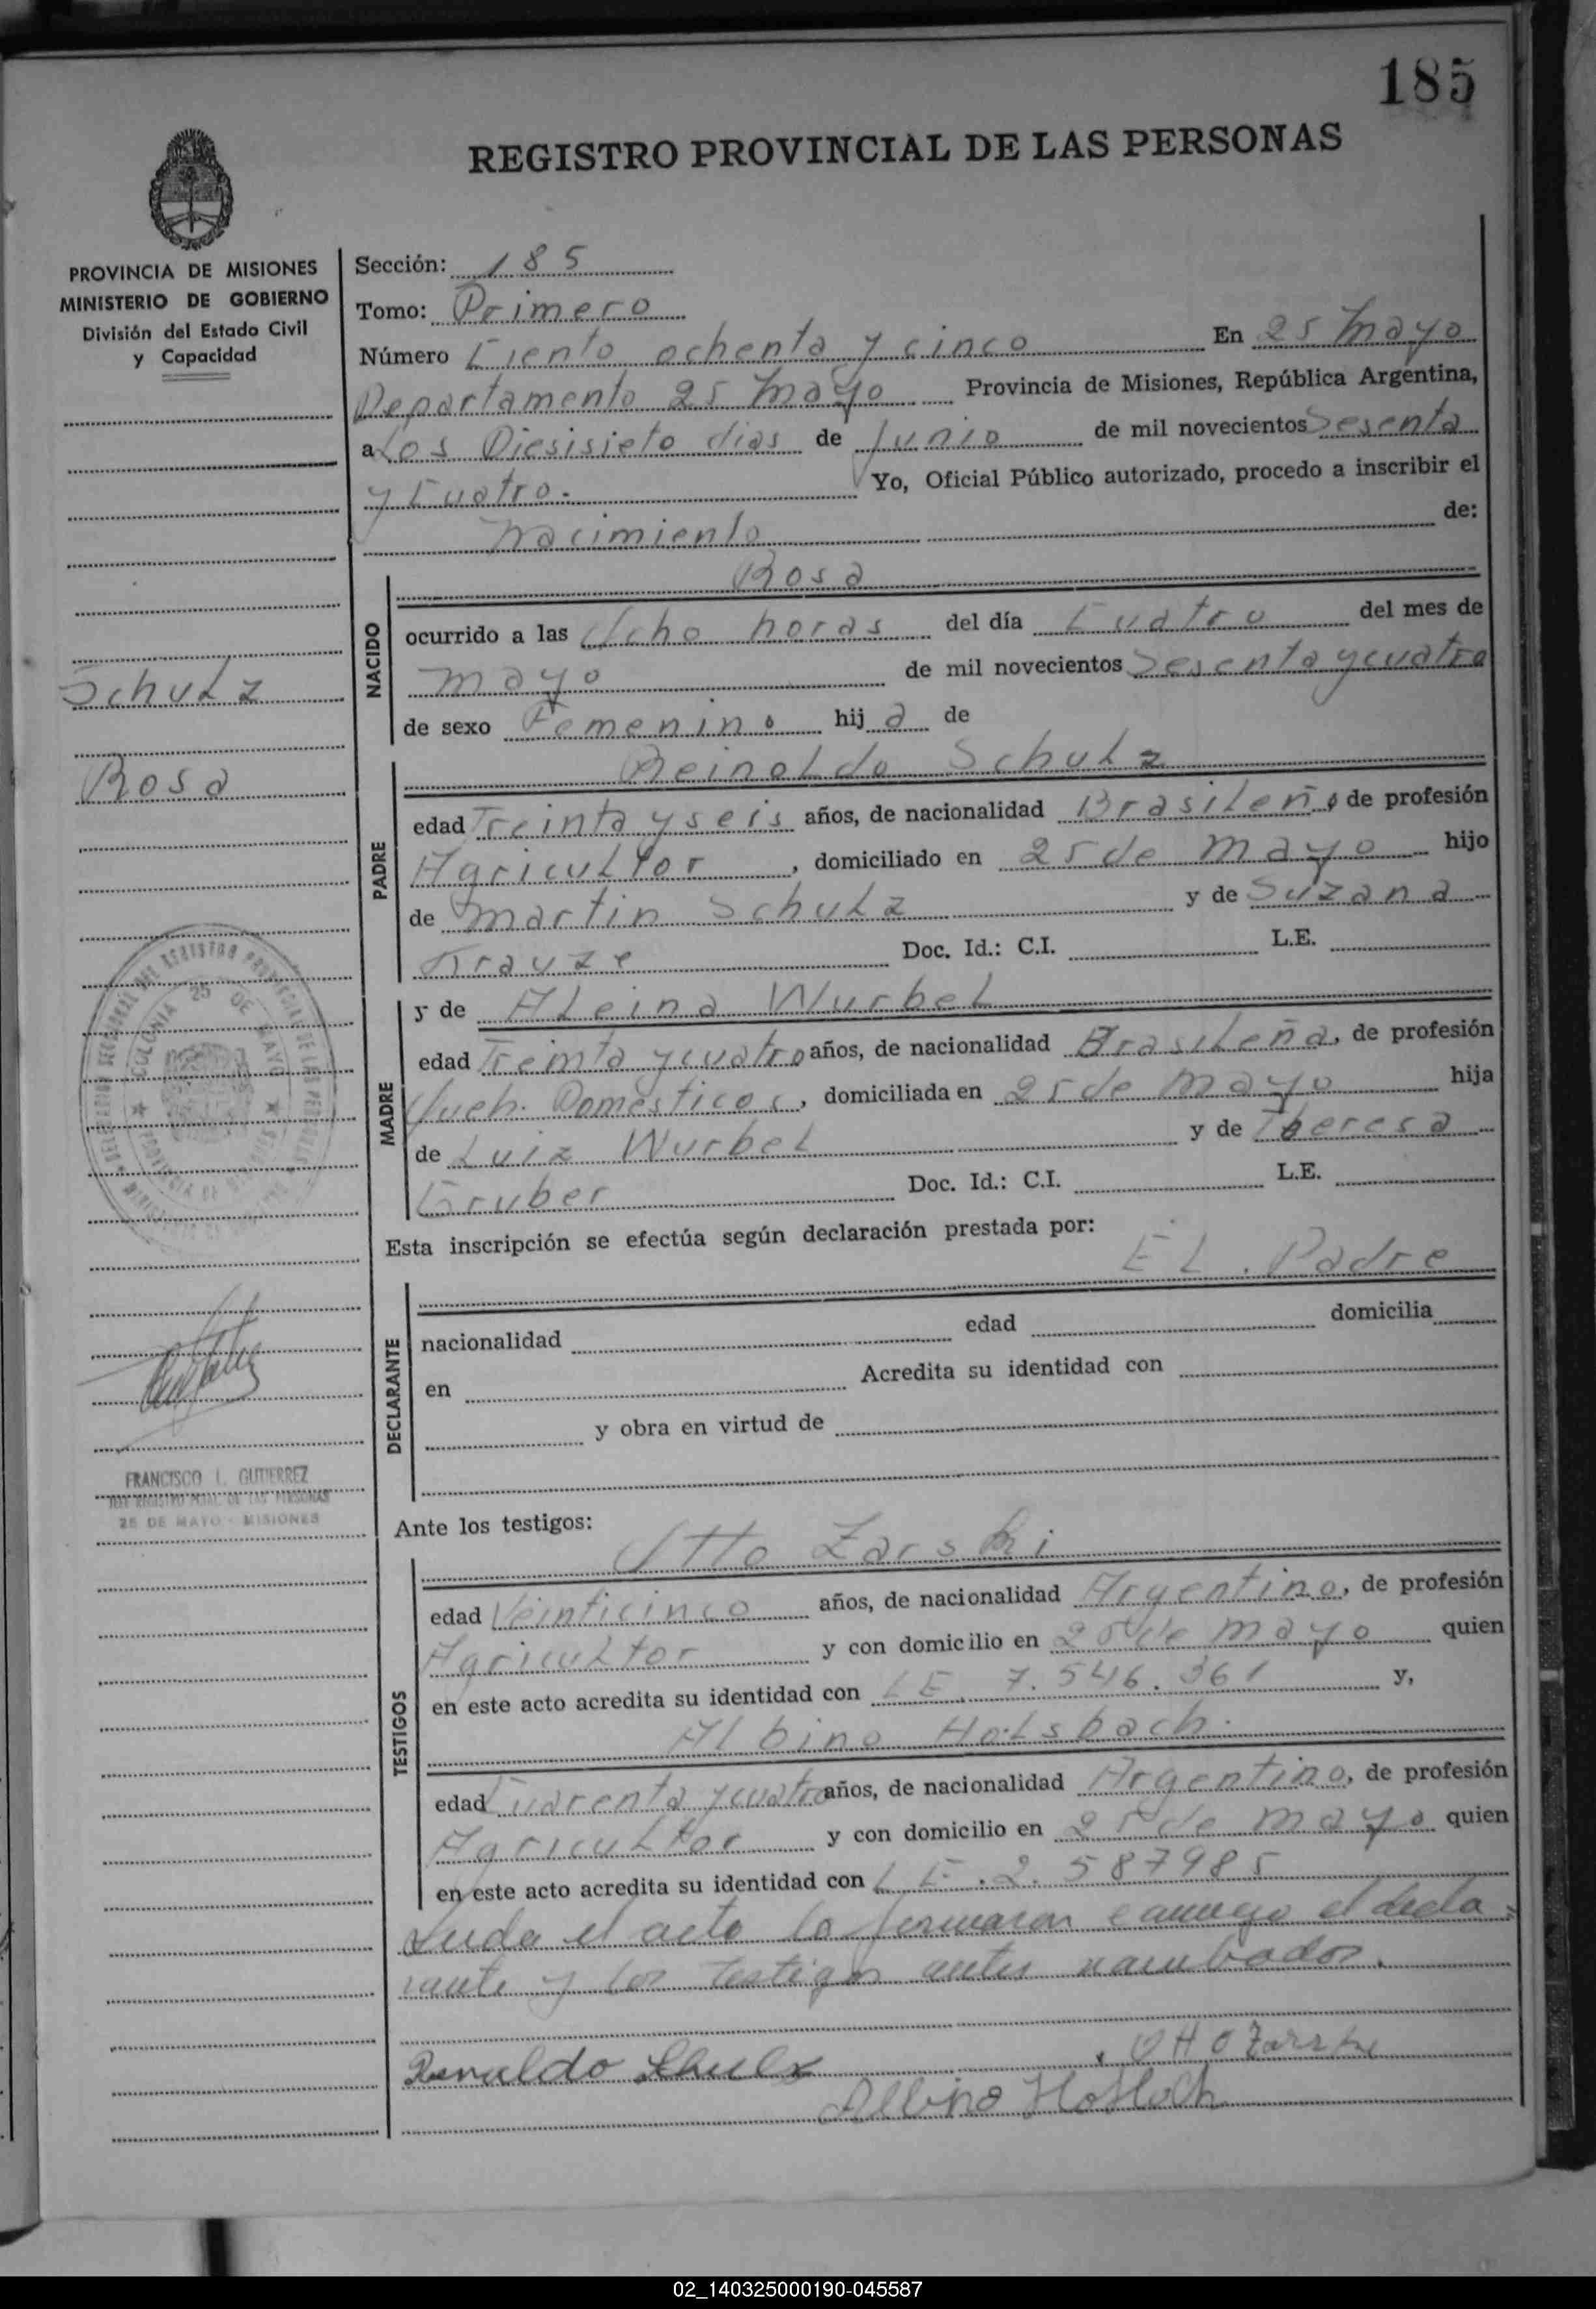 185
REGISTRO PROVINCIAL DE LAS PERSONAS
PROVINCIA DE MISIONES
MINISTERIO DE GOBIERNO
División del Estado Civil
y Capacidad
Schulz
Rosa
FRANCISCO I. GUTIERREZ
JEFE REGISTRO PCIAL. DE LAS PERSONAS
25 DE MAYO - MISIONES
Sección: 185
Tomo: Primero
Número Ciento ochenta y cinco En 25 Mayo
Departamento 25 Mayo Provincia de Misiones, República Argentina,
a Los Diesisiete dias de Junio de mil novecientos Sesenta
y Cuatro. Yo, Oficial Público autorizado, procedo a inscribir el
Nacimiento de:
Rosa
NACIDO
ocurrido a las Ocho horas del día Cuatro del mes de
mayo de mil novecientos Sesenta y cuatro
de sexo Femenino hija de
Reinoldo Schulz
PADRE
edad Treinta y seis años, de nacionalidad Brasileño de profesión
Agricultor, domiciliado en 25 de Mayo hijo
de Martin Schulz y de Suzana
Krauze Doc. Id.: C.I. L.E.
MADRE
y de Aleina Wurbel
edad Treinta y cuatro años, de nacionalidad Brasileña, de profesión
Queh. Domesticos, domiciliada en 25 de Mayo hija
de Luiz Wurbel y de Theresa
Gruber Doc. Id.: C.I. L.E.
Esta inscripción se efectúa según declaración prestada por:
EL Padre
DECLARANTE
nacionalidad edad domicilia
en Acredita su identidad con
y obra en virtud de
Ante los testigos:
Otto Zarski
TESTIGOS
edad Veinticinco años, de nacionalidad Argentino, de profesión
Agricultor y con domicilio en 25 de Mayo quien
en este acto acredita su identidad con LE. 7.546.361 y,
Albino Holsbach.
edad Cuarenta y cuatro años, de nacionalidad Argentino, de profesión
Agricultor y con domicilio en 25 de Mayo quien
en este acto acredita su identidad con LE. 2.587985
Leida el acta la firmaron conmigo el decla-
rante y los testigos antes nombados.
Renaldo Schulz
Otto Zarski
Albino
02_140325000190-045587